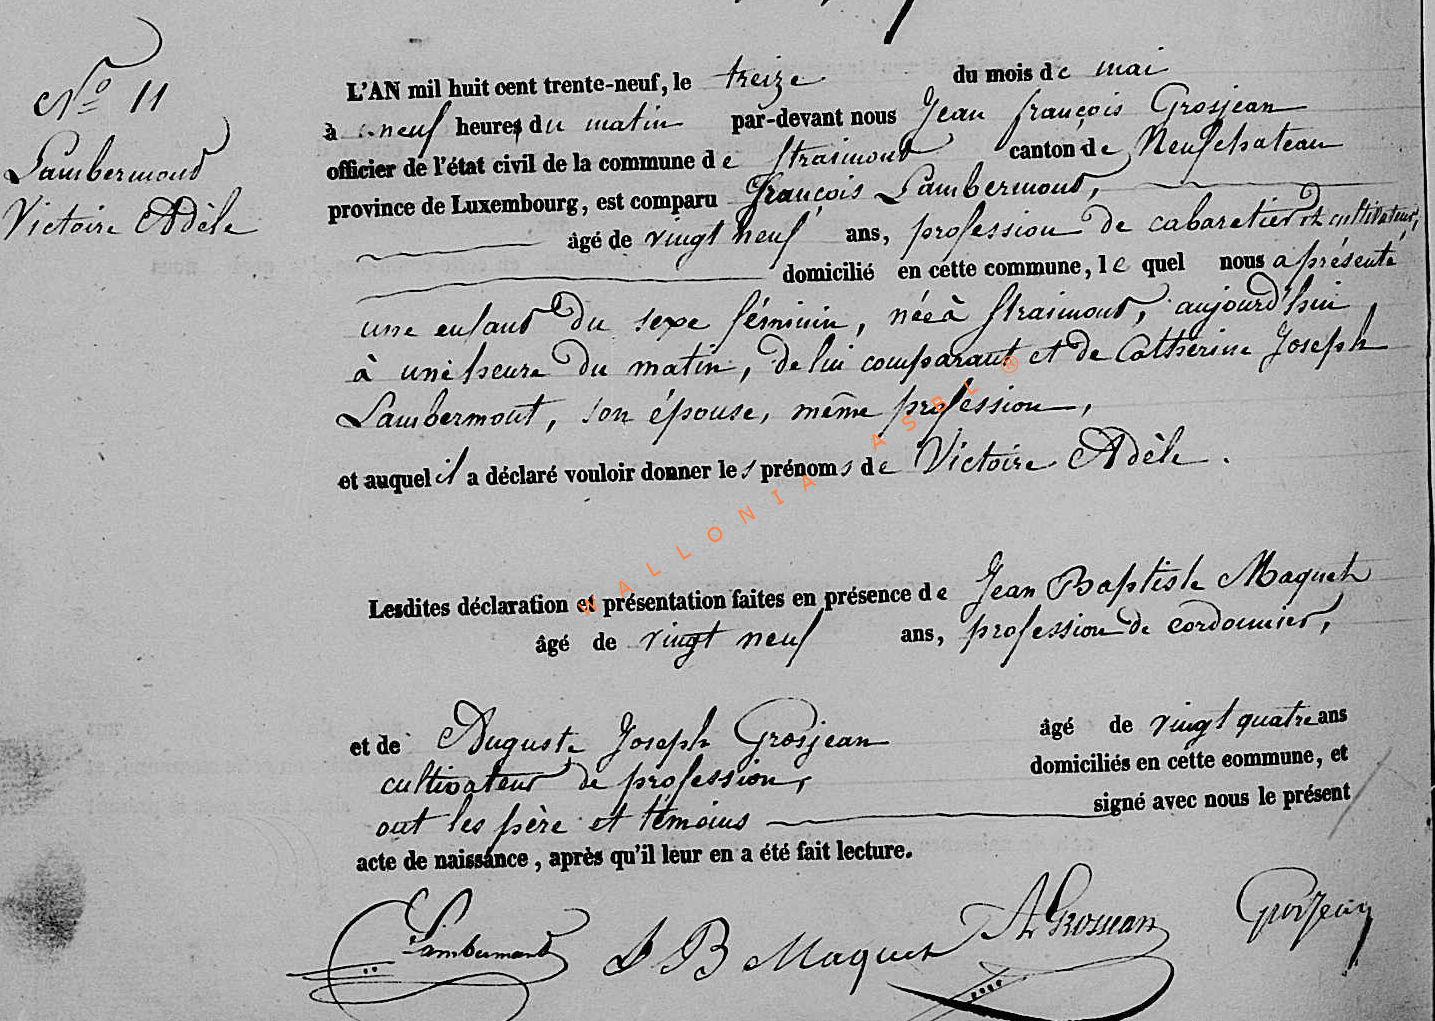 No 11
Lambermond
Victoire Adèle
L'AN mil huit cent trente-neuf, le treize du mois de mai
à neuf heures du matin par-devant nous Jean françois Grosjean
officier de l'état civil de la commune de Straimond canton de Neufchateau
province de Luxembourg, est comparu François Lambermond,
âgé de vingt neuf ans, profession de cabaretier et cultivateur,
domicilié en cette commune, lequel nous a présenté
une enfant du sexe féminin, née à Straimond, aujourd'hui
à une heure du matin, de lui comparant et de Catherine Joseph
Lambermont, son épouse, même profession,
et auquel il a déclaré vouloir donner les prénoms de Victoire Adèle.
WALLONIA ASBL ®
Lesdites déclaration et présentation faites en présence de Jean Baptiste Maquet
âgé de vingt neuf ans, profession de cordonnier,
et de Auguste Joseph Grosjean âgé de vingt quatre ans
cultivateur de profession, domiciliés en cette commune, et
ont les père et témoins signé avec nous le présent
acte de naissance, après qu'il leur en a été fait lecture.
Lambermond J B Maquet A Grosjean Grosjean